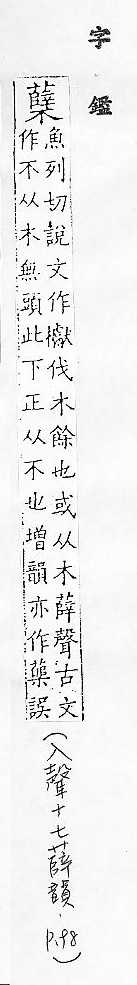 字鑑
蘖
魚列切說文作𣡌伐木餘也或从木薛聲古文
作不从木無頭此下正从不也增韻亦作蘗誤
(入聲十七薛韻. P.98)